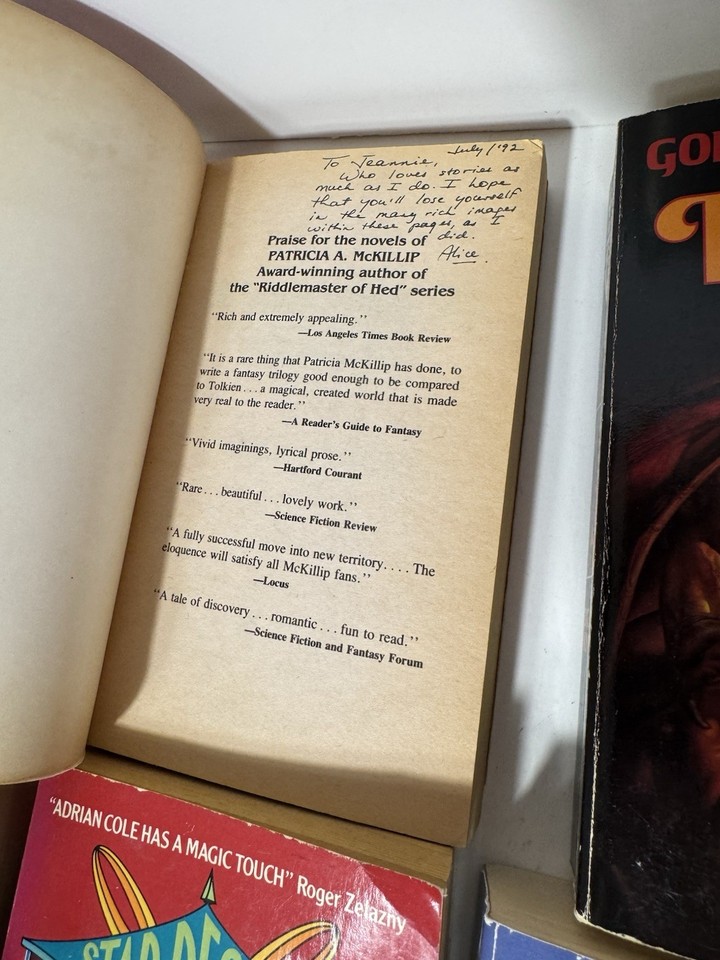 July/'92
To Jeannie,
Who loves stories as
much as I do. I hope
that you'll lose yourself
in the many rich images
within these pages, as I
did.
Alice
Praise for the novels of
PATRICIA A. McKILLIP
Award-winning author of
the "Riddlemaster of Hed" series
"Rich and extremely appealing."
—Los Angeles Times Book Review
"It is a rare thing that Patricia McKillip has done, to
write a fantasy trilogy good enough to be compared
to Tolkien . . . a magical, created world that is made
very real to the reader."
—A Reader's Guide to Fantasy
"Vivid imaginings, lyrical prose."
—Hartford Courant
"Rare . . . beautiful . . . lovely work."
—Science Fiction Review
"A fully successful move into new territory. . . . The
eloquence will satisfy all McKillip fans."
—Locus
"A tale of discovery . . . romantic . . . fun to read."
—Science Fiction and Fantasy Forum
"ADRIAN COLE HAS A MAGIC TOUCH" Roger Zelazny
STAR